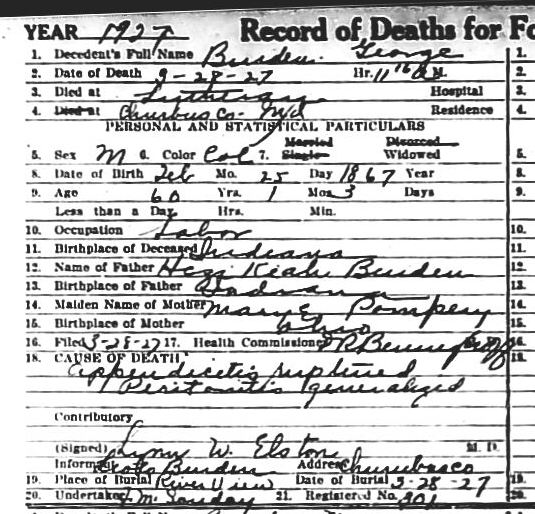 YEAR 1927 Record of Deaths for Fo
1. Decedent's Full Name Burden. George 1.
2. Date of Death 9-28-27 Hr. 11 M. 2.
3. Died at Lutheran Hospital 3.
4. Died at Churubusco Residence 4.
PERSONAL AND STATISTICAL PARTICULARS
Married Divorced
5. Sex M 6. Color Col 7. Single Widowed 5.
8. Date of Birth Feb Mo. 25 Day 1867 Year 8.
9. Age 60 Yrs. 1 Mos. 3 Days 9.
Less than a Day Hrs. Min.
10. Occupation Labor 10.
11. Birthplace of Deceased Indiana 11.
12. Name of Father Hezi Keah Burden 12.
13. Birthplace of Father 13.
14. Maiden Name of Mother Mary E Pompery 14.
15. Birthplace of Mother Ohio 15.
16. Filed 3-28-27 17. Health Commissioner 16.
18. CAUSE OF DEATH, 18.
appendicetis ruptured
Peritonitis generalized
Contributory
(Signed) Lynn W. Elston M. D.
Informant Burden Address Churubusco
19. Place of Burial River View Date of Burial 3-28-27 19.
20. Undertaker J. M. Sonday 21. Registered No. 201 20.